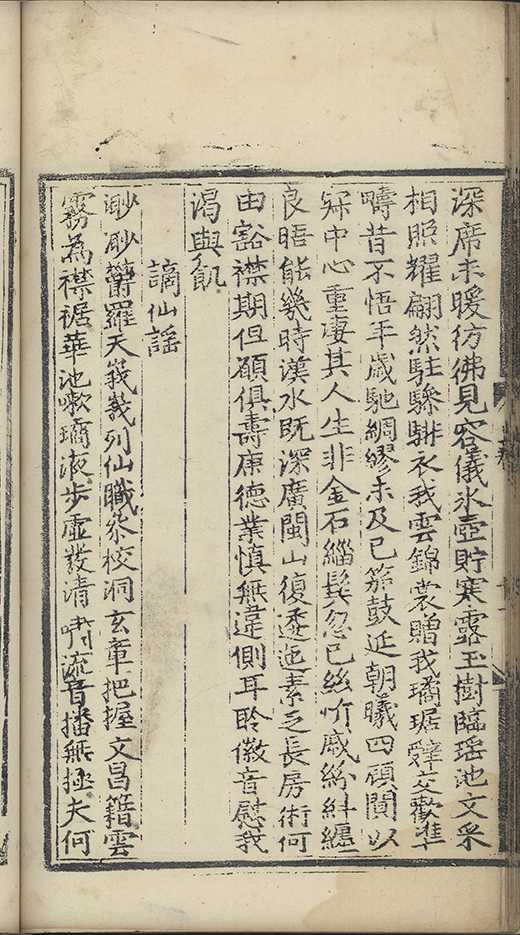 深席未暖彷彿見容儀氷壺貯寒露玉樹臨瑶池文采
相照耀翩然駐驂騑衣我雲錦裳贈我璚琚辭交歡準
疇昔不悟年歲馳綢繆未及已笳鼓延朝曦四頋闃以
寂中心重凄其人生非金石緇鬓忽已絲忻戚紛糾纏
良晤能幾時漢水既深廣閩山復逶迤素乏長房術何
由豁襟期但頋俱壽康德業慎無違側耳聆徽音慰我
渴與飢
謫仙謡
渺渺欝羅天峩峩列仙職叅校洞玄章把握文昌籍雲
霧為襟裾華池嗽璚液步虚發清嘯流音播無極夫何